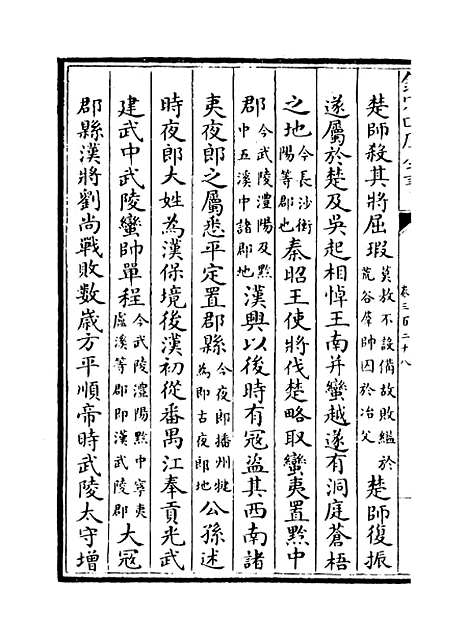 楚師殺其將屈瑕莫敖不設備故敗縊於荒谷羣帥囚於冶父楚師復振
遂屬於楚及吳起相悼王南并蠻越遂有洞庭蒼梧
之地今長沙衡陽等郡也秦昭王使將伐楚略取蠻夷置黔中
郡今武陵澧陽及黔中五溪中諸郡地漢興以後時有冦盜其西南諸
夷夜郎之屬悉平定置郡縣今夜郎播州犍為即古夜郎地公孫述
時夜郎大姓為漢保境後漢初從番禺江奉貢光武
建武中武陵蠻帥單程今武陵澧陽黔中寧夷盧溪等郡即漢武陵郡大冦
郡縣漢將劉尚戰敗數歲方平順帝時武陵太守增
卷三百二十八